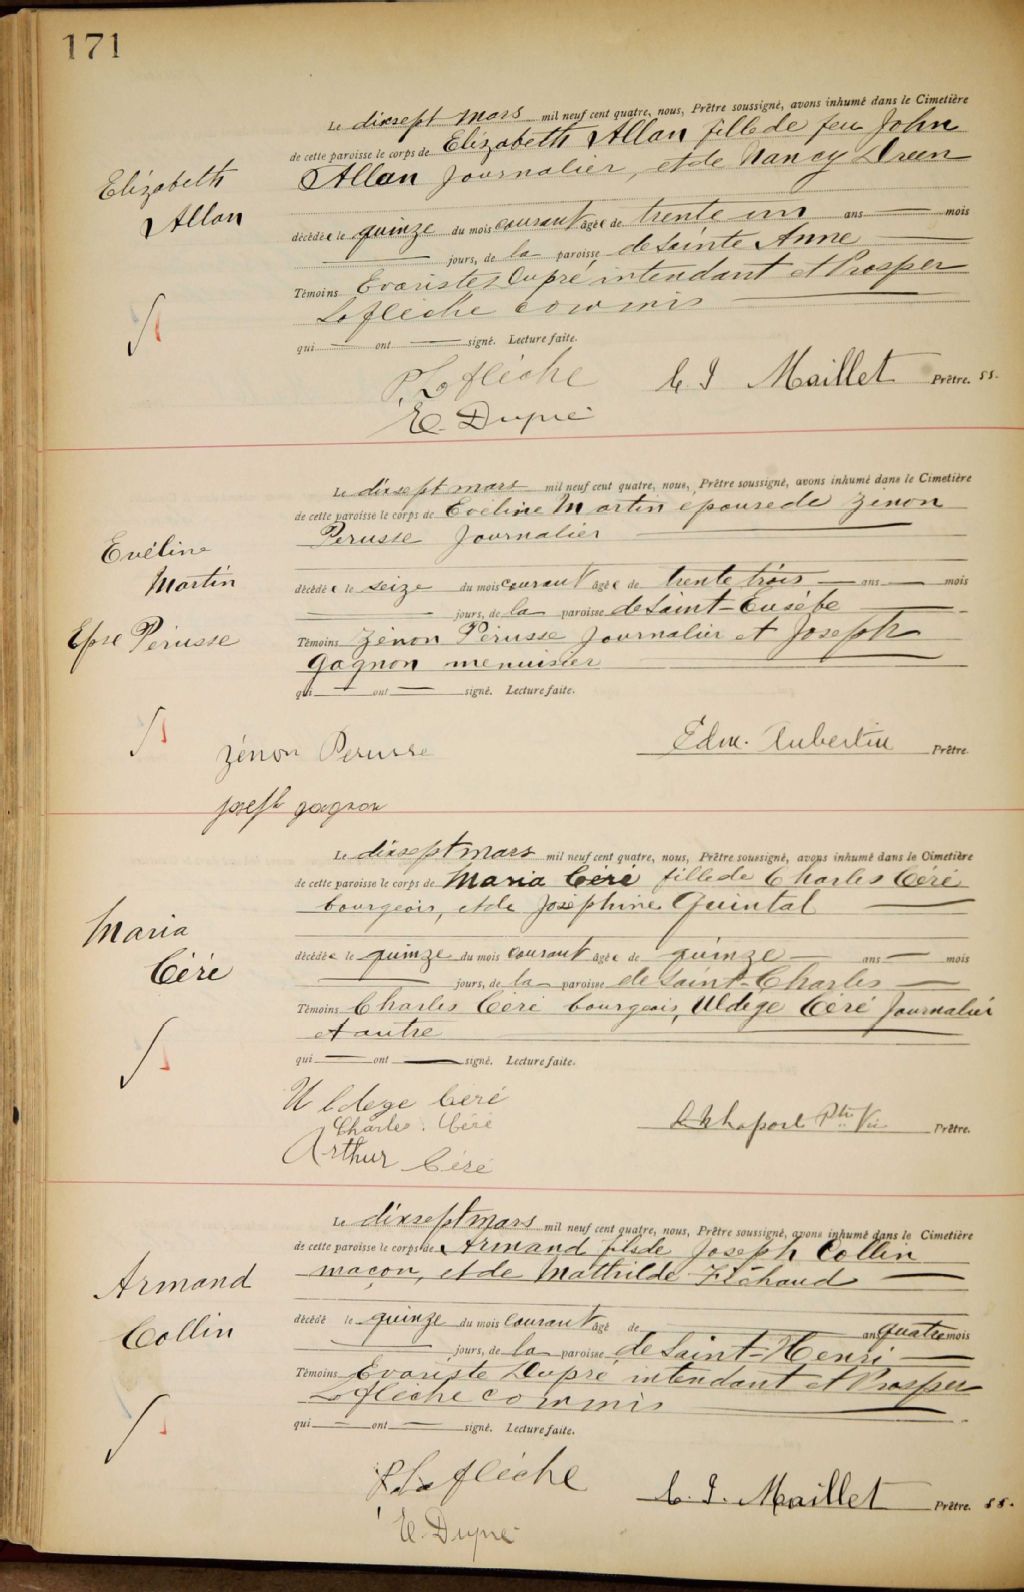 171
Le dixsept mars mil neuf cent quatre, nous, Prêtre soussigné, avons inhumé dans le Cimetière
de cette paroisse le corps de Elizabeth Allan fille de feu John
Elizabeth
Allan
Allan journalier, et de Nancy
décédée le quinze du mois courant âgée de trente un ans — mois
— jours, de la paroisse de Sainte Anne —
Témoins Evariste Dupré intendant et Prosper
Laflèche commis —
qui — ont — signé. Lecture faite.
P. Laflèche
C. J. Maillet Prêtre. SS.
E. Dupré
Le dixsept mars mil neuf cent quatre, nous, Prêtre soussigné, avons inhumé dans le Cimetière
de cette paroisse le corps de Eveline Martin épouse de Zénon
Perusse journalier —
Evéline
Martin
Epse Pérusse
décédée le seize du mois courant âgée de trente trois — ans — mois
— jours, de la paroisse de Saint-Eusèbe —
Témoins Zénon Pérusse journalier et Joseph
Gagnon menuisier —
qui — ont — signé. Lecture faite.
Zénon Perusse
Edm. Aubertin Prêtre.
joseph gagnon
Le dixsept mars mil neuf cent quatre, nous, Prêtre soussigné, avons inhumé dans le Cimetière
de cette paroisse le corps de Maria Céré fille de Charles Céré
bourgeois, et de Joséphine Quintal —
Maria
Céré
décédée le quinze du mois courant âgée de quinze — ans — mois
— jours, de la paroisse de Saint-Charles —
Témoins Charles Céré bourgeois, Uldege Céré journalier
et autre —
qui — ont — signé. Lecture faite.
Uldege Céré
Charles Céré
Ptre Vic Prêtre.
Arthur Céré
Le dixsept mars mil neuf cent quatre, nous, Prêtre soussigné, avons inhumé dans le Cimetière
de cette paroisse le corps de Armand fils de Joseph Collin
maçon, et de Mathilde —
Armand
Collin
décédé le quinze du mois courant âgé de — an quatre mois
— jours, de la paroisse de Saint-Henri —
Témoins Evariste Dupré intendant et Prosper
Laflèche commis —
qui — ont — signé. Lecture faite.
P. Laflèche
C. J. Maillet Prêtre. SS.
E. Dupré